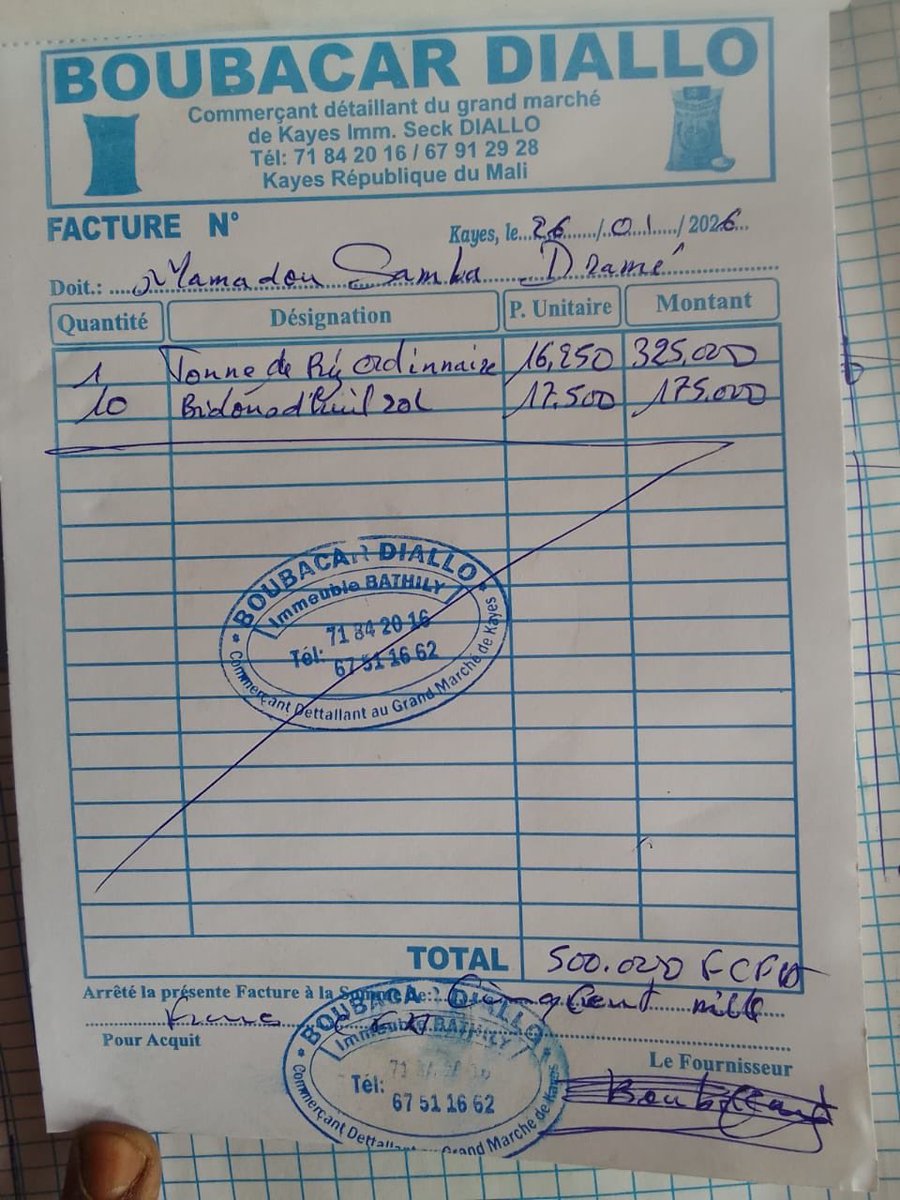 BOUBACAR DIALLO
Commerçant détaillant du grand marché
de Kayes Imm. Seck DIALLO
Tél: 71 84 20 16 / 67 91 29 28
Kayes République du Mali
FACTURE N°
Kayes, le...26....../..01../2026
Doit.: Mamadou Samba Dramé
Quantité Désignation P. Unitaire Montant
1 Tonne de Riz ordinnaise 16,250 325,000
10 Bidons d'huil 20L 17.500 175.000
BOUBACAR DIALLO
Immeuble BATHILY
Tél: 71 84 20 16
67 51 16 62
Commerçant Dettallant au Grand Marché de Kayes
TOTAL 500.000 FCFA
Arrêté la présente Facture à la Somme de: Cinq Cent mille
Francs CFA
Pour Acquit
Le Fournisseur
BOUBACA DIALLO
Immeuble BATHILY
Tél:
67 51 16 62
Commerçant Grand Marché de Kayes